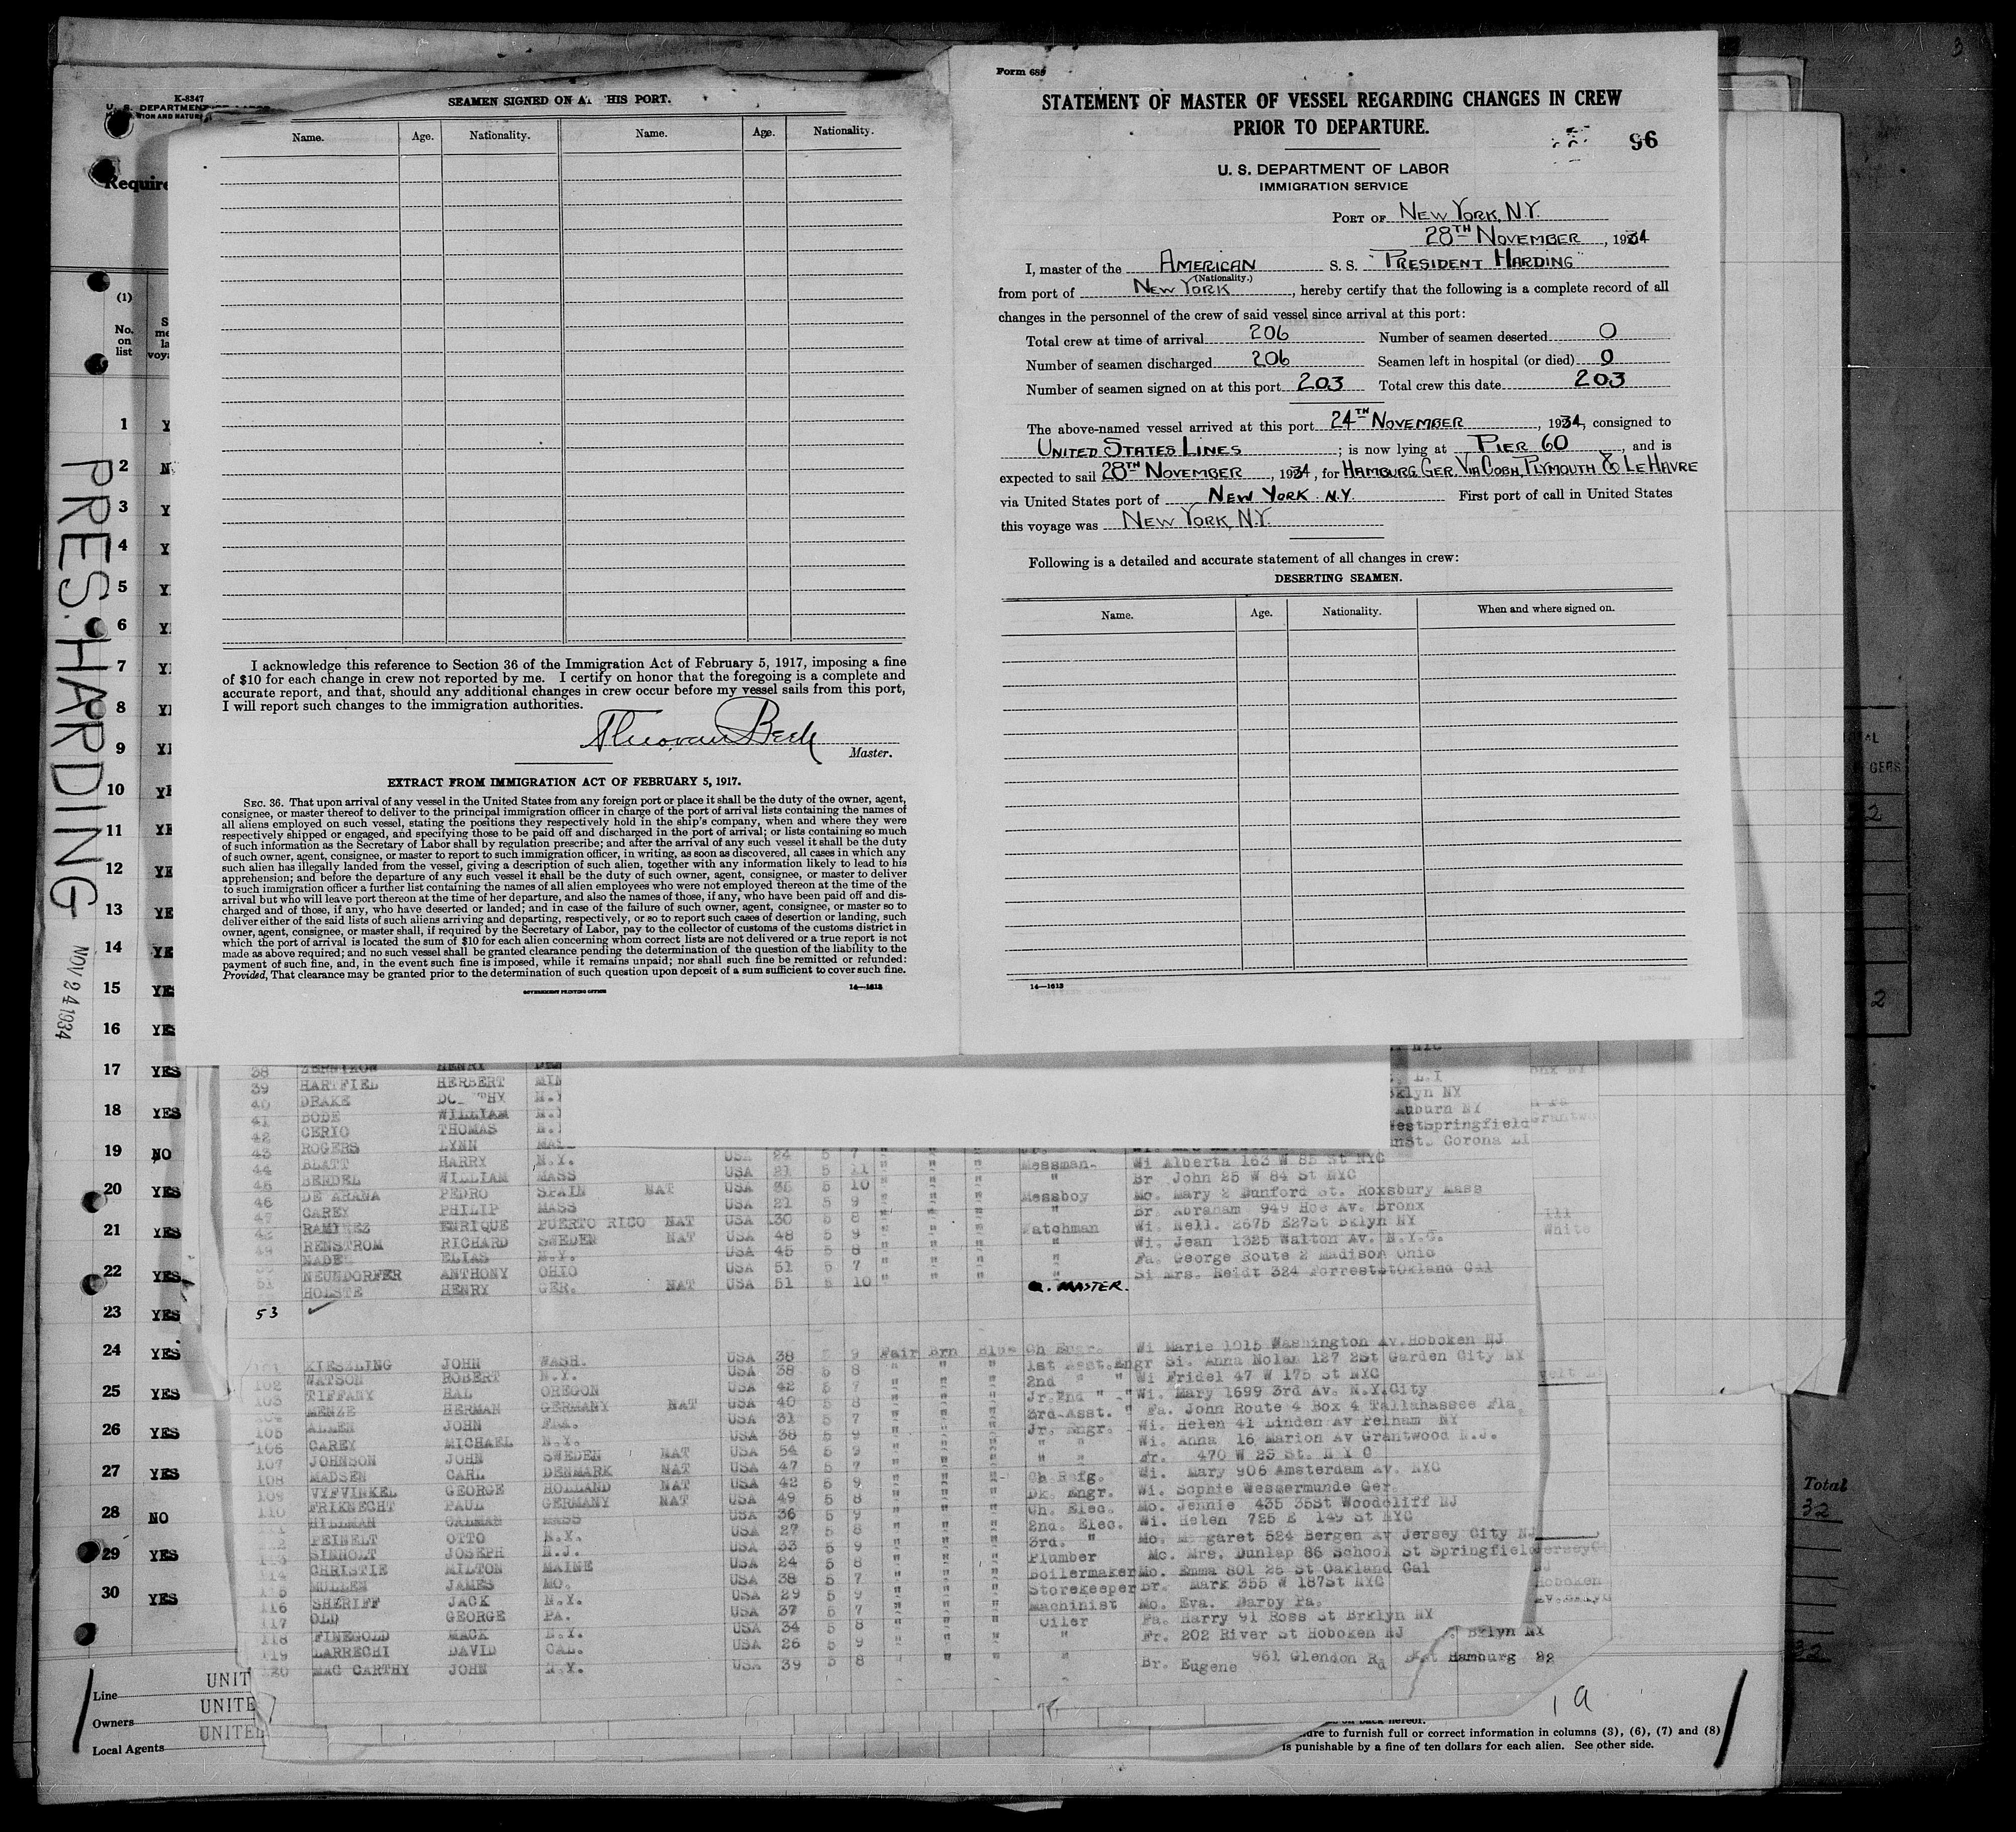 K-8347
U. S. DEPARTMENT
Require
SEAMEN SIGNED ON A HIS PORT.
Name. Age. Nationality. Name. Age. Nationality.
I acknowledge this reference to Section 36 of the Immigration Act of February 5, 1917, imposing a fine
of $10 for each change in crew not reported by me. I certify on honor that the foregoing is a complete and
accurate report, and that, should any additional changes in crew occur before my vessel sails from this port,
I will report such changes to the immigration authorities.
Master.
EXTRACT FROM IMMIGRATION ACT OF FEBRUARY 5, 1917.
SEC. 36. That upon arrival of any vessel in the United States from any foreign port or place it shall be the duty of the owner, agent,
consignee, or master thereof to deliver to the principal immigration officer in charge of the port of arrival lists containing the names of
all aliens employed on such vessel, stating the positions they respectively hold in the ship's company, when and where they were
respectively shipped or engaged, and specifying those to be paid off and discharged in the port of arrival; or lists containing so much
of such information as the Secretary of Labor shall by regulation prescribe; and after the arrival of any such vessel it shall be the duty
of such owner, agent, consignee, or master to report to such immigration officer, in writing, as soon as discovered, all cases in which any
such alien has illegally landed from the vessel, giving a description of such alien, together with any information likely to lead to his
apprehension; and before the departure of any such vessel it shall be the duty of such owner, agent, consignee, or master to deliver
to such immigration officer a further list containing the names of all alien employees who were not employed thereon at the time of the
arrival but who will leave port thereon at the time of her departure, and also the names of those, if any, who have been paid off and dis-
charged and of those, if any, who have deserted or landed; and in case of the failure of such owner, agent, consignee, or master so to
deliver either of the said lists of such aliens arriving and departing, respectively, or so to report such cases of desertion or landing, such
owner, agent, consignee, or master shall, if required by the Secretary of Labor, pay to the collector of customs of the customs district in
which the port of arrival is located the sum of $10 for each alien concerning whom correct lists are not delivered or a true report is not
made as above required; and no such vessel shall be granted clearance pending the determination of the question of the liability to the
payment of such fine, and, in the event such fine is imposed, while it remains unpaid; nor shall such fine be remitted or refunded:
Provided, That clearance may be granted prior to the determination of such question upon deposit of a sum sufficient to cover such fine.
GOVERNMENT PRINTING OFFICE 14—1613
Form 689
STATEMENT OF MASTER OF VESSEL REGARDING CHANGES IN CREW
PRIOR TO DEPARTURE.
96
U. S. DEPARTMENT OF LABOR
IMMIGRATION SERVICE
PORT OF NEW YORK, N.Y.
28TH NOVEMBER, 1934
I, master of the AMERICAN S. S. "PRESIDENT HARDING"
(Nationality.)
from port of NEW YORK, hereby certify that the following is a complete record of all
changes in the personnel of the crew of said vessel since arrival at this port:
Total crew at time of arrival 206 Number of seamen deserted 0
Number of seamen discharged 206 Seamen left in hospital (or died) 0
Number of seamen signed on at this port 203 Total crew this date 203
The above-named vessel arrived at this port 24TH NOVEMBER, 1934, consigned to
UNITED STATES LINES; is now lying at PIER 60, and is
expected to sail 28TH NOVEMBER, 1934, for HAMBURG, GER. VIA COBH, PLYMOUTH & LE HAVRE
via United States port of NEW YORK N.Y. First port of call in United States
this voyage was NEW YORK, N.Y.
Following is a detailed and accurate statement of all changes in crew:
DESERTING SEAMEN.
Name. Age. Nationality. When and where signed on.
14—1613
PRES. HARDING
NOV 24 1934
(1)
No. on list
1
2
3
4
5
6
7
8
9
10
11
12
13
14 YE
15 YES
16 YES
17 YES
18 YES
19 NO
20 YES
21 YES
22 YES
23 YES
24 YES
25 YES
26 YES
27 YES
28 NO
29 YES
30 YES
38 HENRY
39 HARTFIEL HERBERT
40 DRAKE
41 BODE WILLIAM
42 CERIO THOMAS
43 ROGERS LYNN
44 BLATT HARRY N.Y. USA 24 5 7 Messman. Wi Alberta 163 W 85 St NYC
45 BENDEL WILLIAM MASS USA 21 5 11 " Br John 25 W 84 St NYC
46 DE ARANA PEDRO SPAIN NAT USA 5 10 Mo. Mary 2 Dunford St. Roxsbury Mass
47 CAREY PHILIP MASS USA 21 5 9 Messboy Br. Abraham 949 Hoe Av. Bronx
RAMIREZ ENRIQUE PUERTO RICO NAT USA 30 5 8 Wi. Nell. 2675 E27St Bklyn NY
49 RENSTROM RICHARD SWEDEN NAT USA 48 5 9 Watchman Wi. Jean 1325 Walton Av. N.Y.C.
NADEL ELIAS N.Y. USA 45 5 8 Fa. George Route 2 Madison Ohio
51 NEUNDORFER ANTHONY OHIO USA 51 5 7 Si Mrs. Reidt 324 Forrest St Okland Cal
HOLSTE HENRY GER. NAT USA 51 5 10
MASTER.
53
KIESZLING JOHN WASH. USA 38 9 Fair Brn Blue Ch Engr. Wi Marie 1015 Washington Av. Hoboken NJ
102 WATSON ROBERT N.Y. USA 38 5 8 1st Asst. Engr Si. Anna Nolan 127 2St Garden City NY
103 TIFFANY HAL OREGON USA 42 5 7 2nd " " Wi Fridel 47 W 175 St NYC
MENZE HERMAN GERMANY NAT USA 40 5 8 Jr. 2nd " " Wi. Mary 1699 3rd Av. N.Y. City
105 ALMEN JOHN FLA. USA 31 5 7 3rd Asst. " Fa. John Route 4 Box 4 Tallahassee Fla
106 CAREY MICHAEL N.Y. USA 38 5 9 Jr. Engr. Wi. Helen 41 Linden Av Pelham NY
107 JOHNSON JOHN SWEDEN NAT USA 54 5 9 " " Wi. Anna 16 Marion Av Grantwood N.J.
108 MADSEN CARL DENMARK NAT USA 47 5 7 " " Fr. 470 W 23 St. N Y C
109 VYFVINKEL GEORGE HOLLAND NAT USA 42 5 9 Ch Refg. Wi. Mary 906 Amsterdam Av. NYC
110 FRIKNECHT PAUL GERMANY NAT USA 49 5 8 Dk. Engr. Wi. Sophie Wessermunde Ger.
HILLMAN CALMAN MASS USA 36 5 9 Ch. Elec. Mo. Jennie 435 35St Woodcliff NJ
PEINELT OTTO N.Y. USA 27 5 8 2nd. Elec. Wi. Helen 725 E 149 St NYC
SINHOLT JOSEPH N.J. USA 33 5 9 3rd. " Mo. garet 524 Bergen Av Jersey City NJ
114 CHRISTIE MILTON MAINE USA 24 5 8 Plumber Mo. Mrs. Dunlap 86 School St Springfield
115 MULLEN JAMES MO. USA 38 5 7 Boilermaker Mo. Emma 801 26 St Oakland Cal
116 SHERIFF JACK N.Y. USA 29 5 9 Storekeeper Br. Mark 355 W 187St NYC
117 OLD GEORGE PA. USA 37 5 7 Machinist Mo. Eva. Darby Pa.
118 FINEGOLD MACK N.Y. USA 34 5 8 Oiler Fa. Harry 91 Ross St Brklyn NY
119 LARRECHI DAVID CAL. USA 26 5 9 " Fr. 202 River St Hoboken NJ Bklyn NY
120 MAC CARTHY JOHN N.Y. USA 39 5 8 " Br. Eugene 961 Glendon Rd Hamburg
Line UNIT
Owners UNITE
Local Agents UNITED
ure to furnish full or correct information in columns (3), (6), (7) and (8)
is punishable by a fine of ten dollars for each alien. See other side.
Total
32